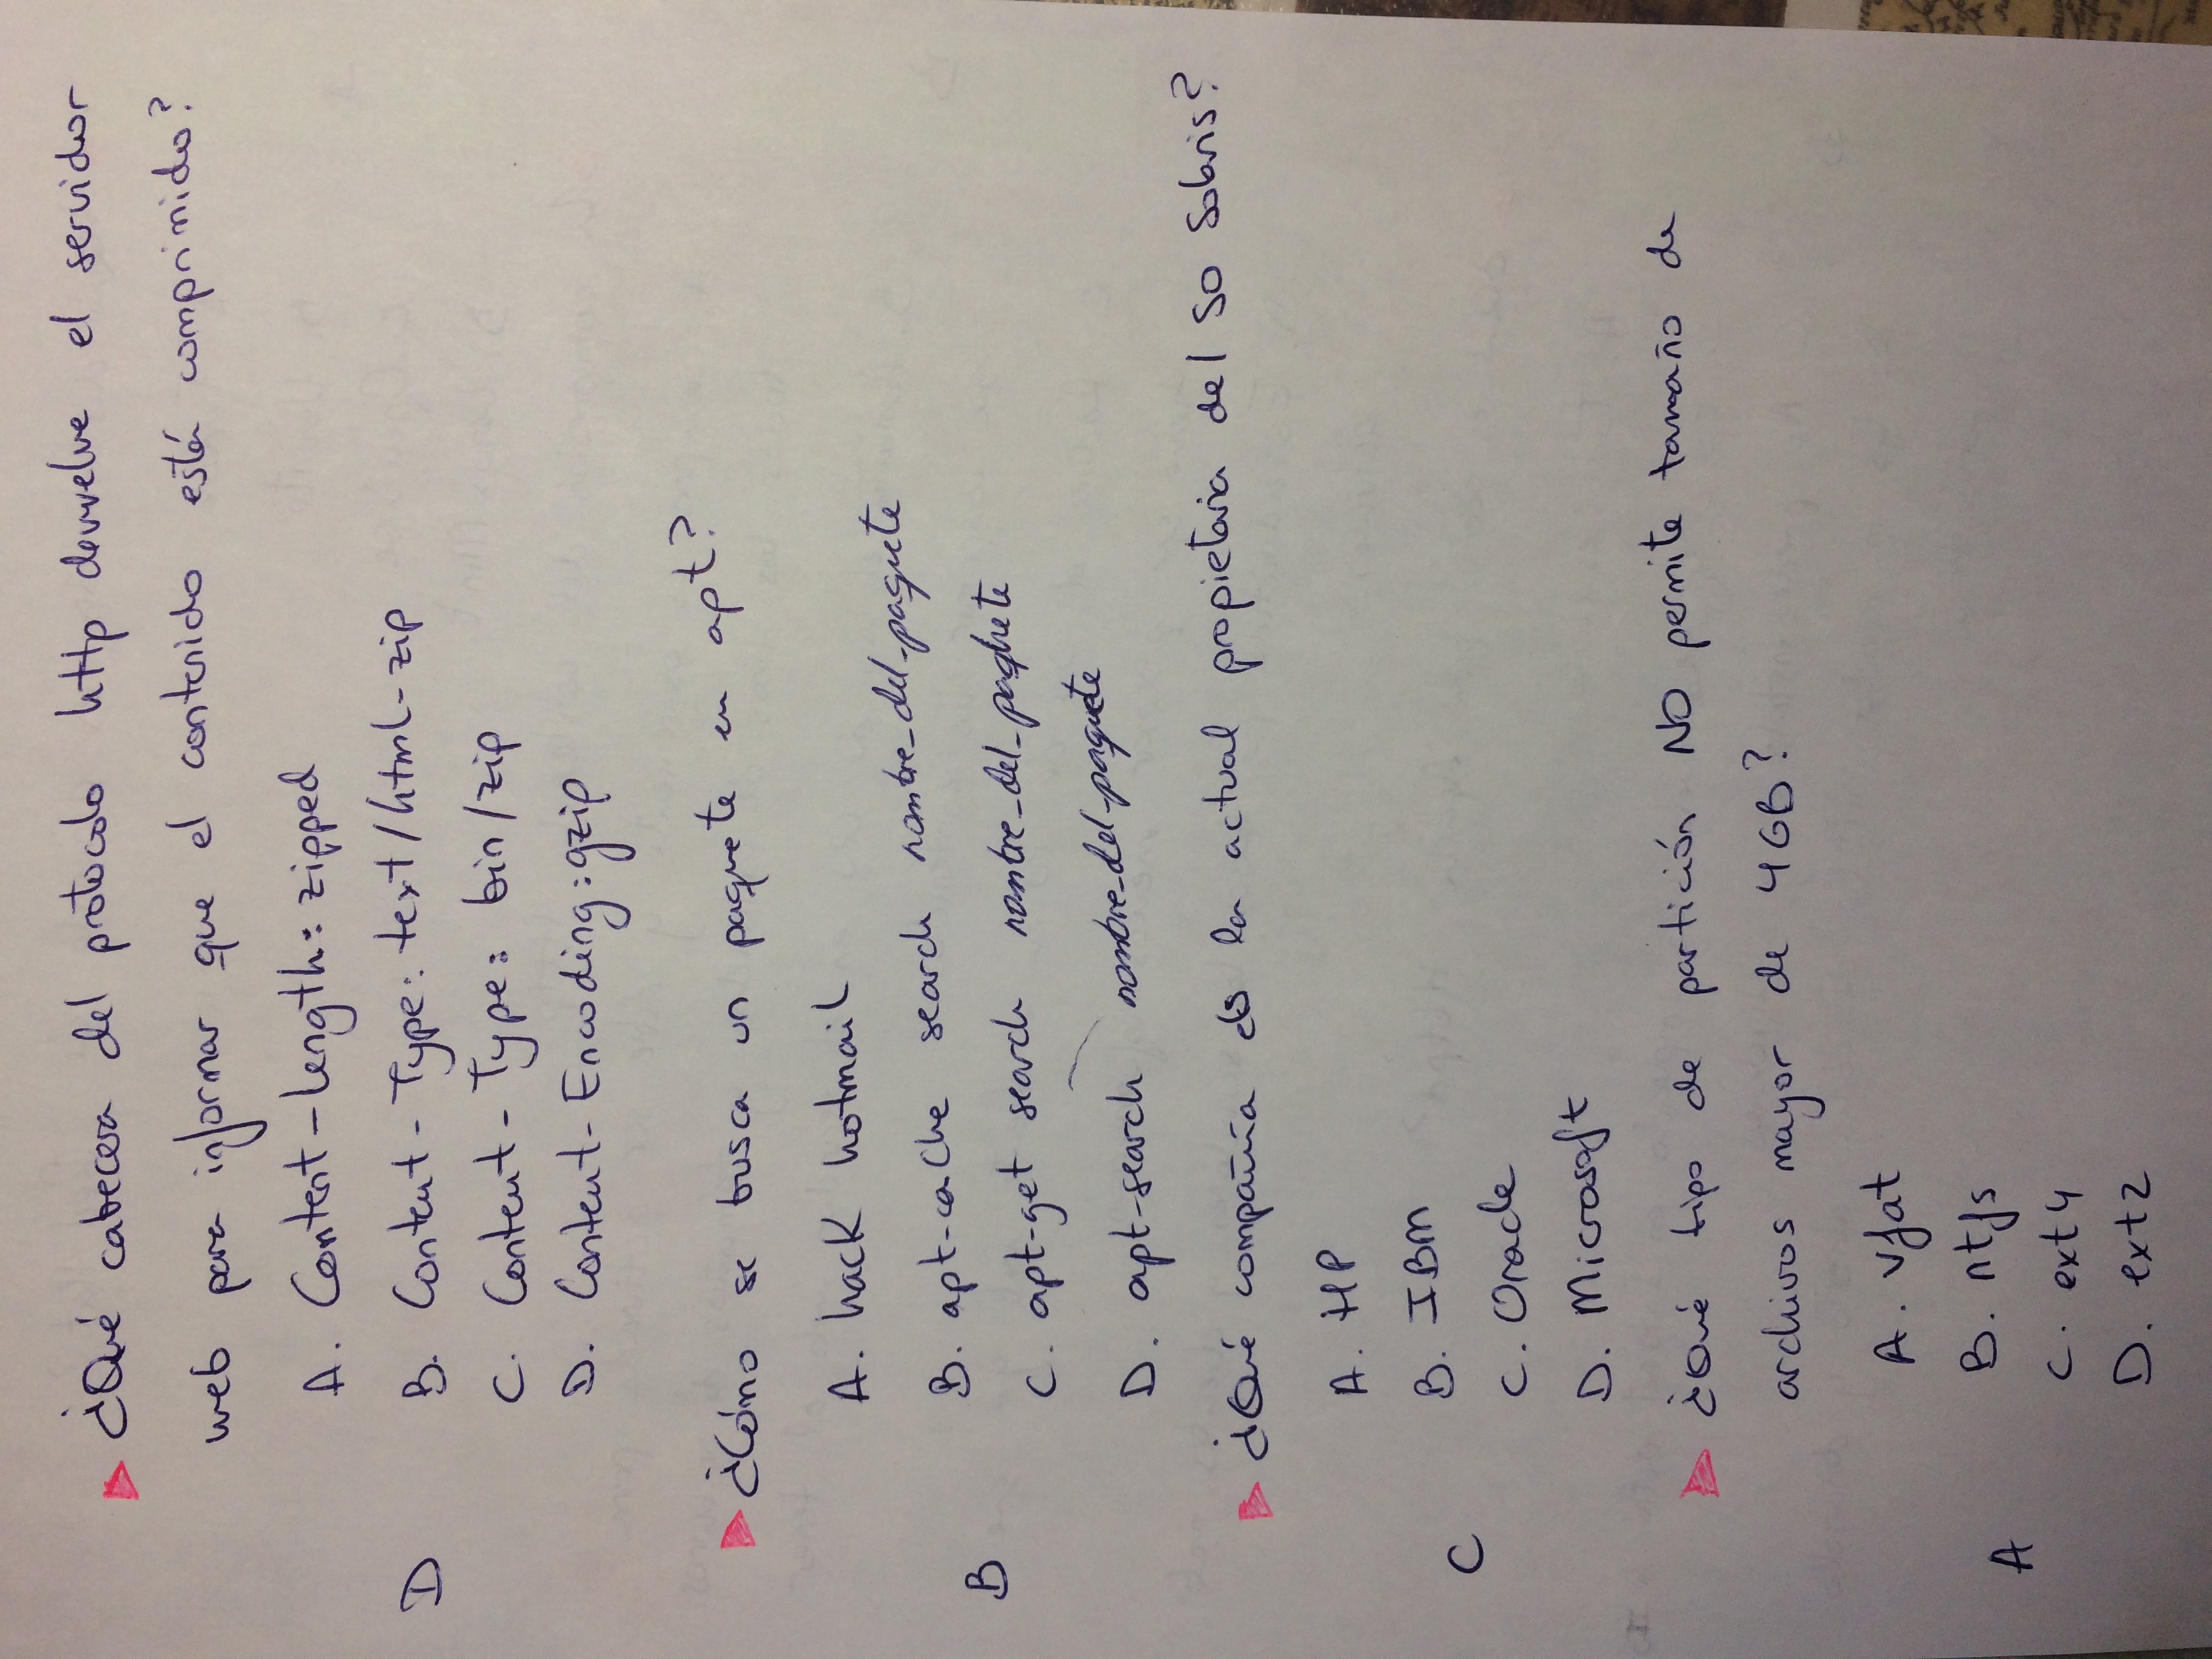 ¿Qué cabecera del protocolo http devuelve el servidor
web para informar que el contenido está comprimido?
A. Content-length: zipped
D
B. Content-Type: text/html-zip
C. Content-Type: bin/zip
D. Content-Encoding: gzip
¿Cómo se busca un paquete en apt?
A. hack hotmail
B. apt-cache search nombre_del_paquete
B
C. apt-get search nombre_del_paquete
D. apt-search nombre_del_paquete
¿Qué compañía es la actual propietaria del SO Solaris?
A. HP
B. IBM
C
C. Oracle
D. Microsoft
¿Qué tipo de partición NO permite tamaño de
archivos mayor de 4GB?
A. vfat
B. ntfs
A
C. ext4
D. ext2